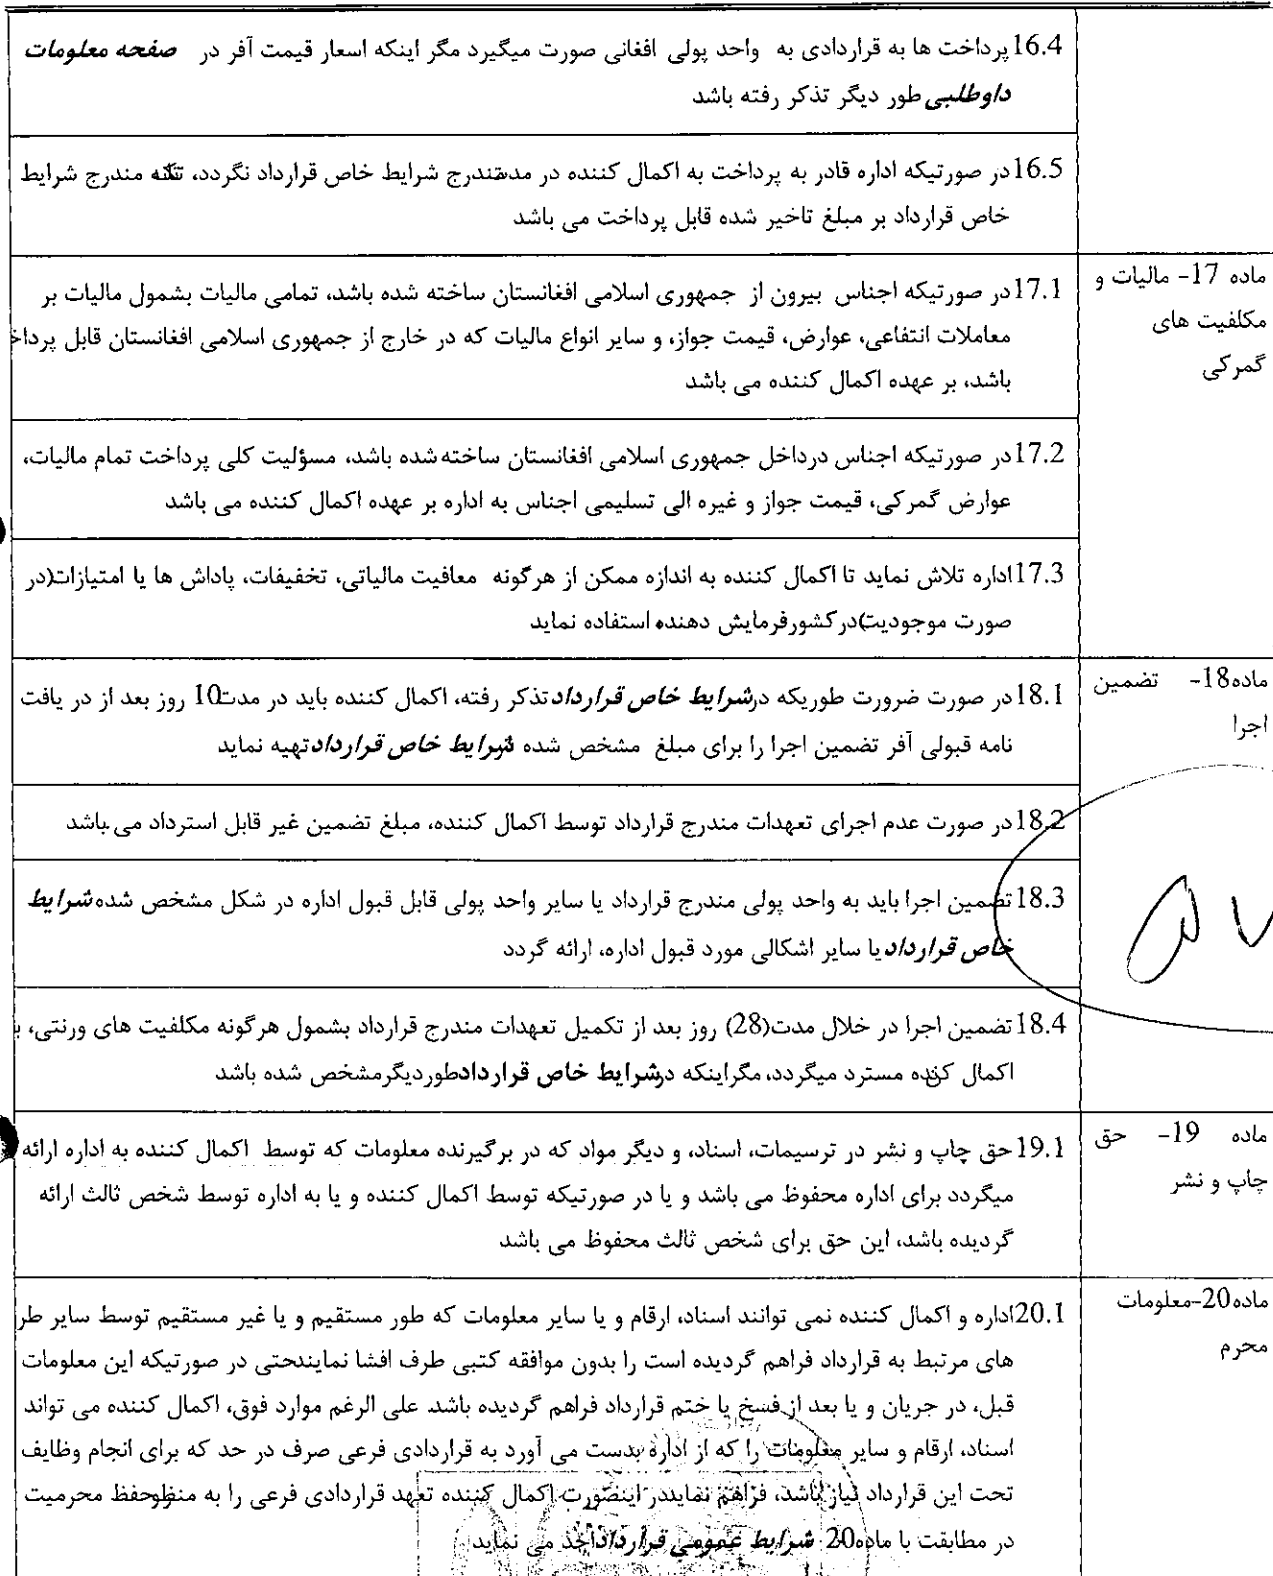 16.4 پرداخت ها به قراردادی به واحد پولی افغانی صورت میگیرد مگر اینکه اسعار قیمت آفر در صفحه معلومات
داوطلبی طور دیگر تذکر رفته باشد
16.5 در صورتیکه اداره قادر به پرداخت به اکمال کننده در مدت مندرج شرایط خاص قرارداد نگردد، تکتانه مندرج شرایط
خاص قرارداد بر مبلغ تاخیر شده قابل پرداخت می باشد
ماده 17- مالیات و
مکلفیت های
گمرکی
17.1 در صورتیکه اجناس بیرون از جمهوری اسلامی افغانستان ساخته شده باشد، تمامی مالیات بشمول مالیات بر
معاملات انتفاعی، عوارض، قیمت جواز، و سایر انواع مالیات که در خارج از جمهوری اسلامی افغانستان قابل پرداخ
باشد، بر عهده اکمال کننده می باشد
17.2 در صورتیکه اجناس درداخل جمهوری اسلامی افغانستان ساخته شده باشد، مسؤلیت کلی پرداخت تمام مالیات،
عوارض گمرکی، قیمت جواز و غیره الی تسلیمی اجناس به اداره بر عهده اکمال کننده می باشد
17.3 اداره تلاش نماید تا اکمال کننده به اندازه ممکن از هرگونه معافیت مالیاتی، تخفیفات، پاداش ها یا امتیازات (در
صورت موجودیت) در کشور فرمایش دهنده استفاده نماید
ماده 18- تضمین
اجرا
18.1 در صورت ضرورت طوریکه در شرایط خاص قرارداد تذکر رفته، اکمال کننده باید در مدت 10 روز بعد از در یافت
نامه قبولی آفر تضمین اجرا را برای مبلغ مشخص شده شرایط خاص قرارداد تهیه نماید
18.2 در صورت عدم اجرای تعهدات مندرج قرارداد توسط اکمال کننده، مبلغ تضمین غیر قابل استرداد می باشد
18.3 تضمین اجرا باید به واحد پولی مندرج قرارداد یا سایر واحد پولی قابل قبول اداره در شکل مشخص شده شرایط
خاص قرارداد یا سایر اشکالی مورد قبول اداره، ارائه گردد
18.4 تضمین اجرا در خلال مدت (28) روز بعد از تکمیل تعهدات مندرج قرارداد بشمول هرگونه مکلفیت های ورنتی، ب
اکمال کننده مسترد میگردد، مگراینکه در شرایط خاص قرارداد طوردیگر مشخص شده باشد
ماده 19- حق
چاپ و نشر
19.1 حق چاپ و نشر در ترسیمات، اسناد، و دیگر مواد که در برگیرنده معلومات که توسط اکمال کننده به اداره ارائه
میگردد برای اداره محفوظ می باشد و یا در صورتیکه توسط اکمال کننده و یا به اداره توسط شخص ثالث ارائه
گردیده باشد، این حق برای شخص ثالث محفوظ می باشد
ماده 20-معلومات
محرم
20.1 اداره و اکمال کننده نمی توانند اسناد، ارقام و یا سایر معلومات که طور مستقیم و یا غیر مستقیم توسط سایر طر
های مرتبط به قرارداد فراهم گردیده است را بدون موافقه کتبی طرف افشا نمایند حتی در صورتیکه این معلومات
قبل، در جریان و یا بعد از فسخ یا ختم قرارداد فراهم گردیده باشد. علی الرغم موارد فوق، اکمال کننده می تواند
اسناد، ارقام و سایر معلومات را که از اداره بدست می آورد به قراردادی فرعی صرف در حد که برای انجام وظایف
تحت این قرارداد نیاز باشد، فراهم نماید در اینصورت اکمال کننده تعهد قراردادی فرعی را به منظور حفظ محرمیت
در مطابقت با ماده 20 شرایط عمومی قرارداد اخذ می نماید